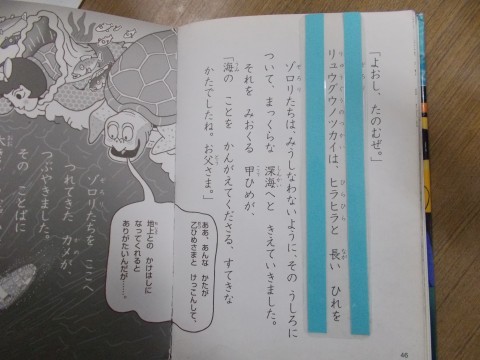 「よおし、たのむぜ。」
リュウグウノツカイは、ヒラヒラと 長い ひれを
ゾロリたちは、みうしなわないように、その うしろに
ついて、まっくらな 深海へと きえていきました。
それを みおくる 甲ひめが、
「海の ことを かんがえてくださる、すてきな
かたでしたね。お父さま。」
ああ、あんな かたが
乙ひめさまと けっこんして、
地上との かけはしに
なってくれると
ありがたいんだが……。
ゾロリたちを ここへ
つれてきた カメが、
つぶやきました。
その ことばに
46